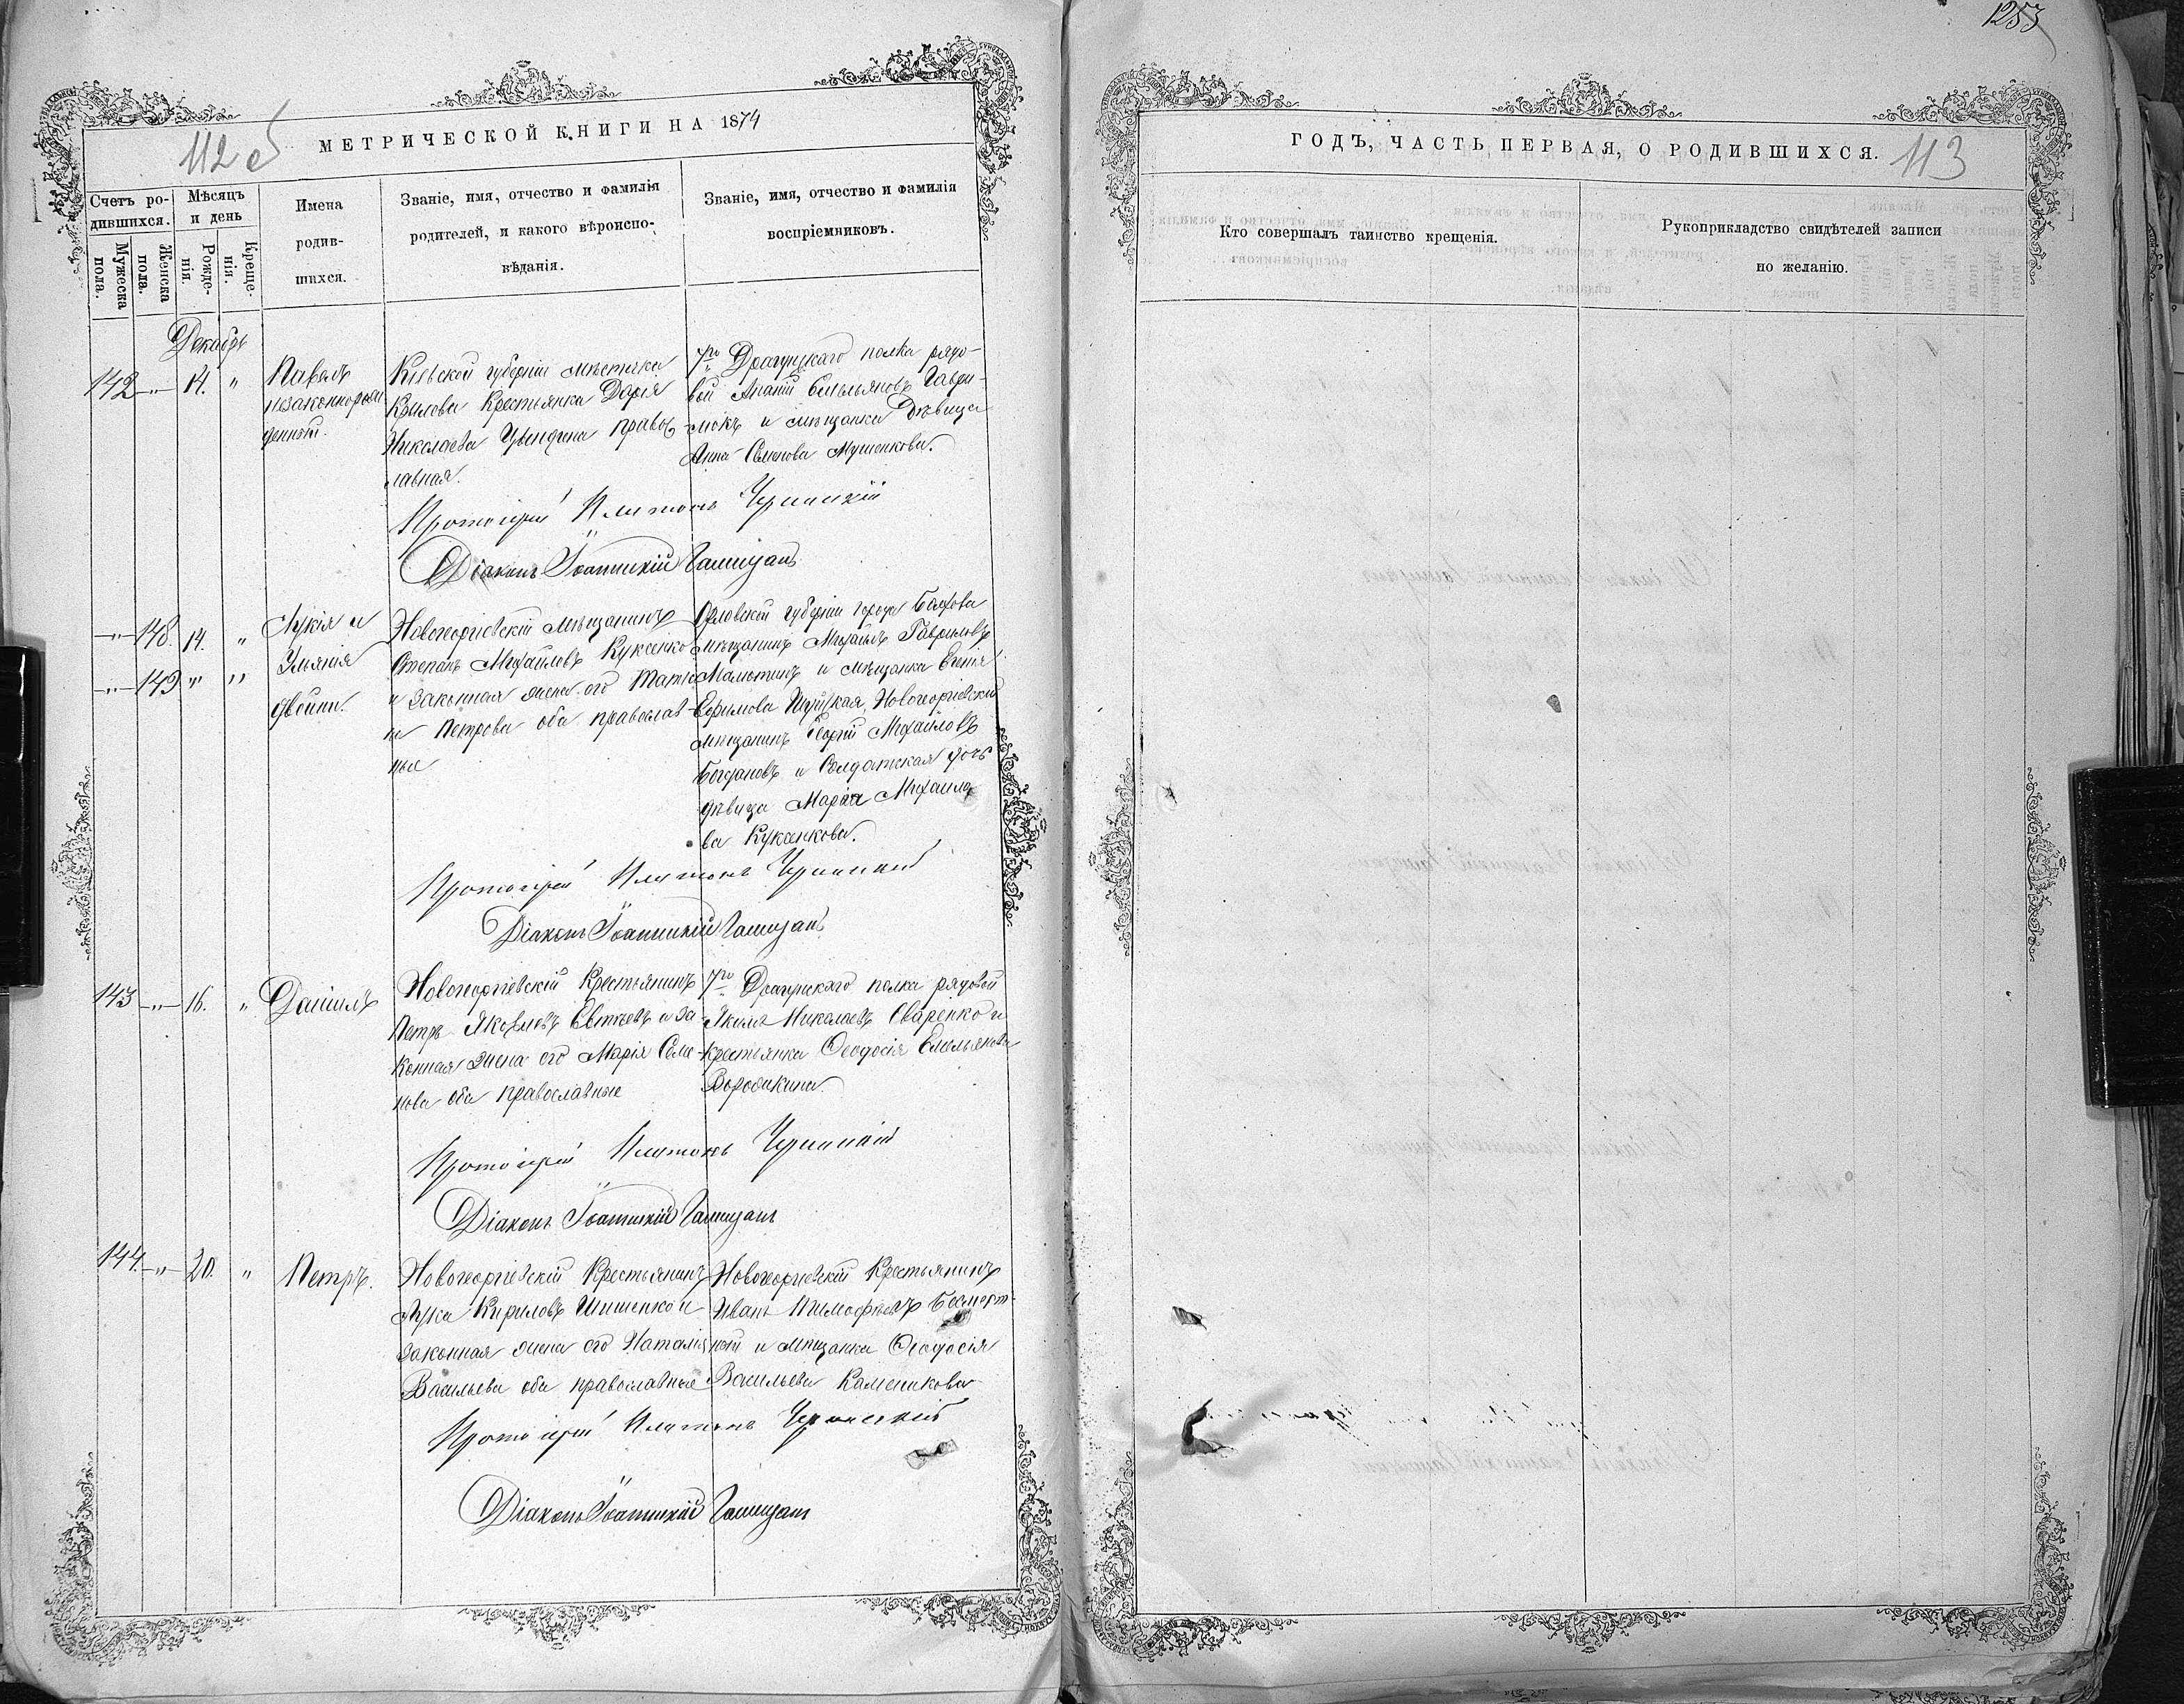 1253
112 об
МЕТРИЧЕСКОЙ КНИГИ НА 1874
Счетъ ро-
дившихся.
Мужеска
пола.
Женска
пола.
Мѣсяцъ
и день
Рожде-
нія.
Креще-
нія.
Имена
родив-
шихся.
Званіе, имя, отчество и фамилія
родителей, и какого вѣроиспо-
вѣданія.
Званіе, имя, отчество и фамилія
воспріемниковъ.
Декабрь
142 -"- 14. "
Павелъ
незаконнорож
денный.
Кіевской губерніи мѣстечка
Крылова Крестьянка Дарія
Николаева правос
лавная.
7го Драгунскаго полка рядо-
вой Ананій Емельяновъ Гаври-
люкъ и мѣщанка дѣвица
Анна Семенова Мушенкова.
Протоіерей Платонъ
Діаконъ Іоанникій
-"- 148. 14. "
-"- 149 " "
Лукія и
Уліянія
двойни.
Новогеоргіевскій мѣщанинъ
Степанъ Михайловъ Куксенко
и законная жена его Татія
на Петрова оба православ
ные
Орловской губерніи города Болхова
мѣщанинъ Михаилъ Гавриловъ
Малютинъ и мѣщанка Евгенія
Ефимова Новогеоргіевскій
мѣщанинъ Георгій Михайловъ
Богдановъ и Солдатская дочь
дѣвица Марія Михайло
ва Куксенкова.
Протоіерей Платонъ
Діаконъ Іоанникій
143 -"- 16. "
Даніилъ
Новогеоргіевскій Крестьянинъ
Петръ Яковлевъ Евтѣевъ и за-
конная жена его Марія Семе-
нова оба православные
7го Драгунскаго полка рядовой
Якимъ Николаевъ Сваренко и
крестьянка Ѳеодосія Емельянова
Протоіерей Платонъ
Діаконъ Іоанникій
144. -"- 20. "
Петръ.
Новогеоргіевскій Крестьянинъ
Лука Кириловъ Шишенко и
законная жена его Наталія
Васильева оба православные
Новогеоргіевскій Крестьянинъ
Иванъ Тимофѣевъ Безсмерт-
ный и мѣщанка Ѳеодосія
Васильева Каменикова
Протоіерей Платонъ
Діаконъ Іоанникій
ГОДЪ, ЧАСТЬ ПЕРВАЯ, О РОДИВШИХСЯ.
113
Кто совершалъ таинство крещенія.
Рукоприкладство свидѣтелей записи
по желанію.